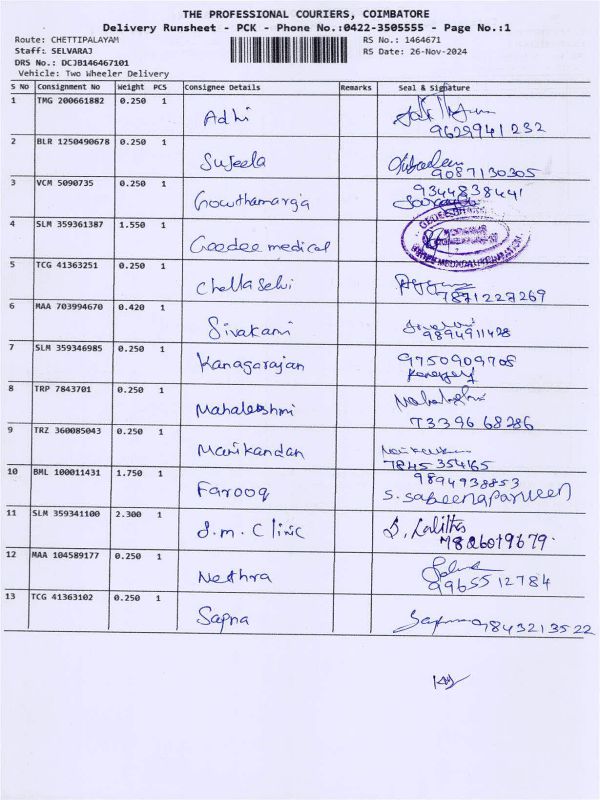 THE PROFESSIONAL COURIERS, COIMBATORE
Delivery Runsheet - PCK - Phone No.:0422-3505555 - Page No.:1
Route: CHETTIPALAYAM RS No.: 1464671
Staff: SELVARAJ RS Date: 26-Nov-2024
DRS No.: DCJB146467101
Vehicle: Two Wheeler Delivery
S No Consignment No Weight PCS Consignee Details Remarks Seal & Signature
1 TMG 200661882 0.250 1 Adhi
9629941232
2 BLR 1250490678 0.250 1 Sujeela
9087130305
3 VCM 5090735 0.250 1 Gowthamarga 9344838441
4 SLM 359361387 1.550 1 Geedee medical
5 TCG 41363251 0.250 1 Chellaselvi
7871227269
6 MAA 703994670 0.420 1 Sivakami
9894911428
7 SLM 359346985 0.250 1 Kanagarajan 9750909708
8 TRP 7843701 0.250 1 Mahalakshmi
73396 68286
9 TRZ 360085043 0.250 1 Manikandan
7845354165
10 BML 100011431 1.750 1 Farooq 9894938853
S. Sabeena Parveen
11 SLM 359341100 2.300 1 J.m. Clinic S. Lalitha
7826019679.
12 MAA 104589177 0.250 1 Nethra
9965512784
13 TCG 41363102 0.250 1 Sapna 9843213522